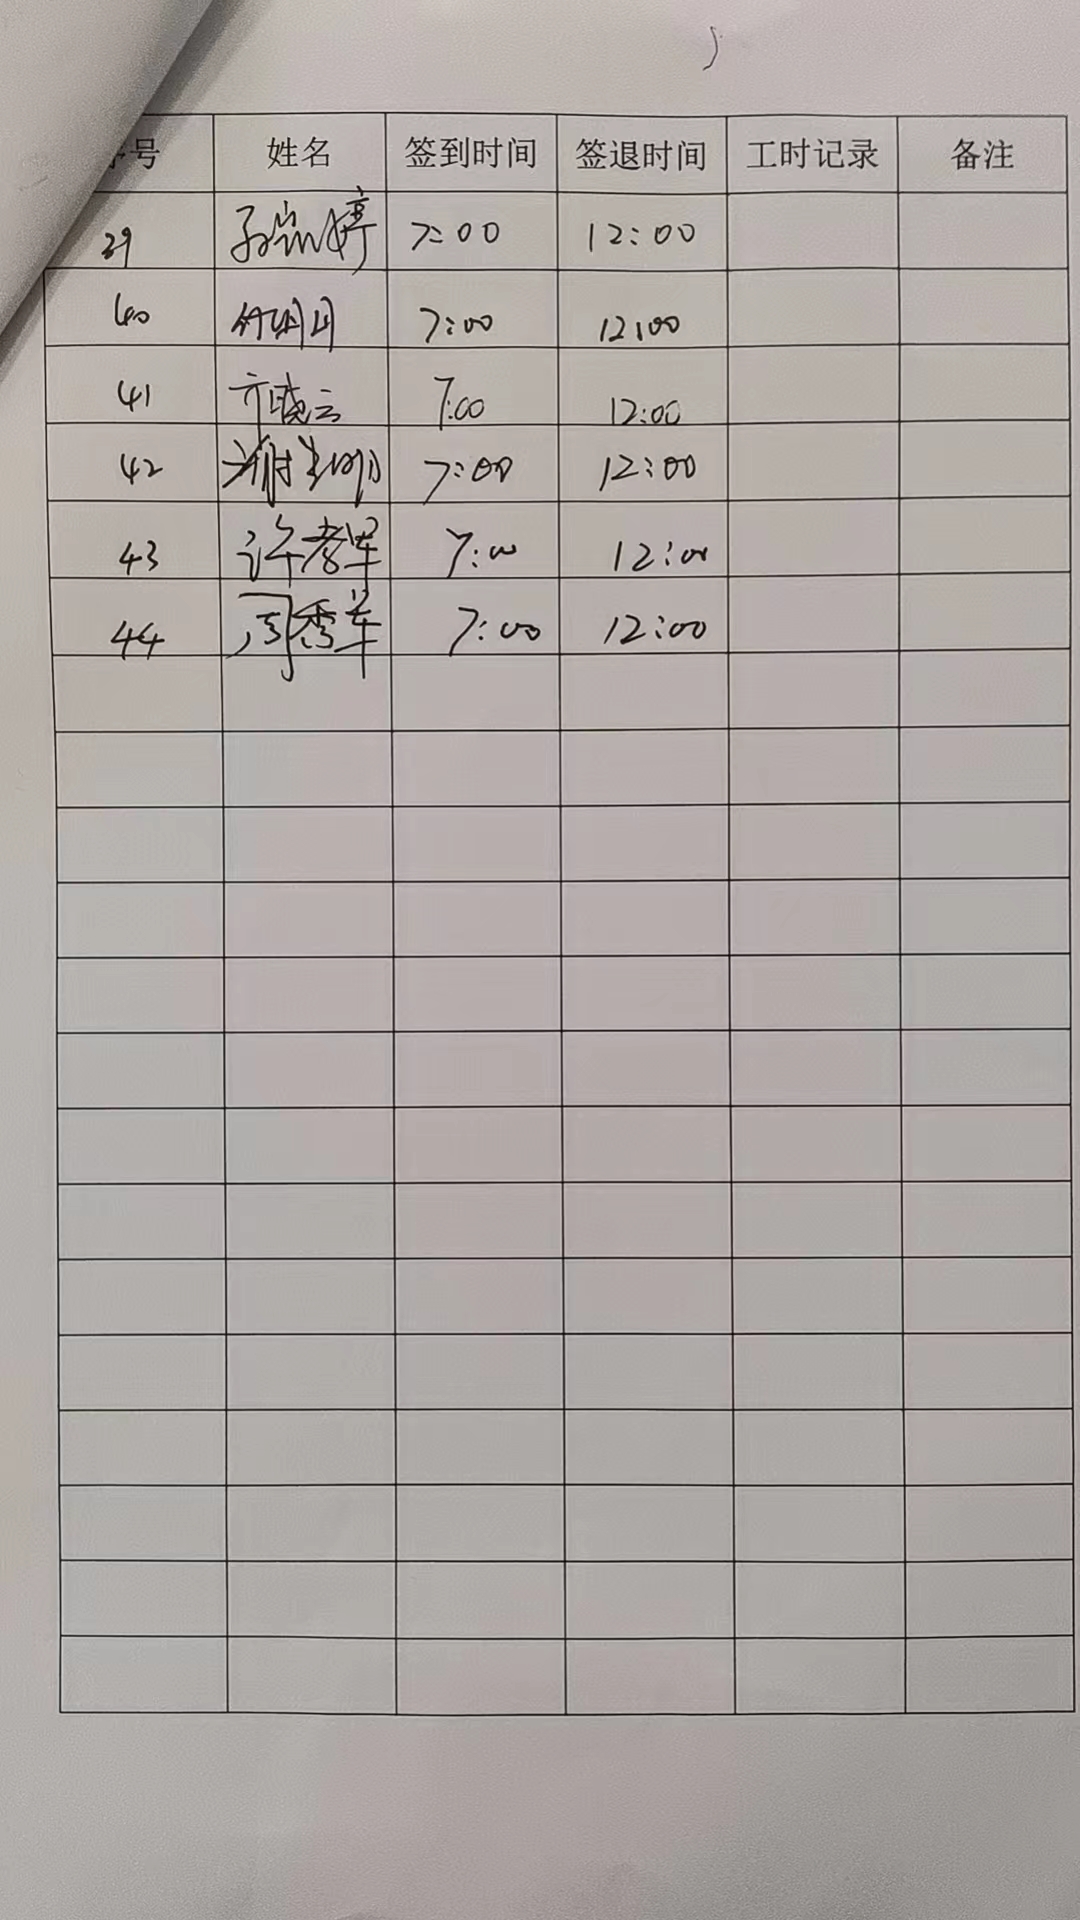 号 姓名 签到时间 签退时间 工时记录 备注
39 孙岚婷 7:00 12:00
40 7:00 12:00
41 齐晓云 7:00 12:00
42 谢生明 7:00 12:00
43 许孝军 7:00 12:00
44 周秀军 7:00 12:00